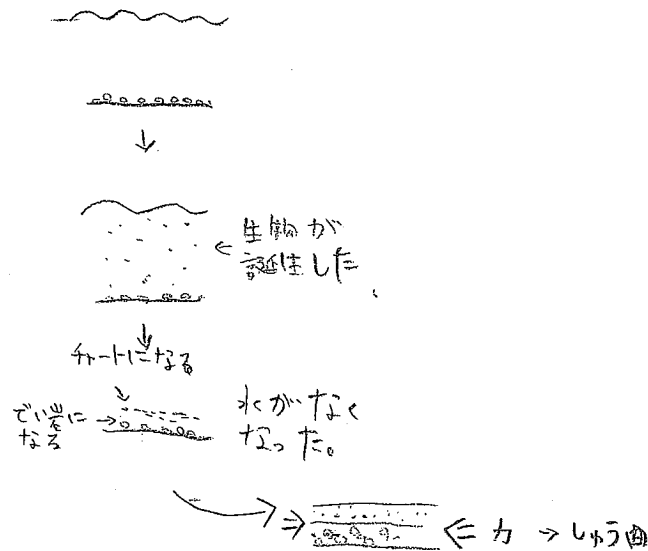 生物が
誕生した
チャートになる
でい岩に
なる
水がなく
なった。
力 → しゅう曲